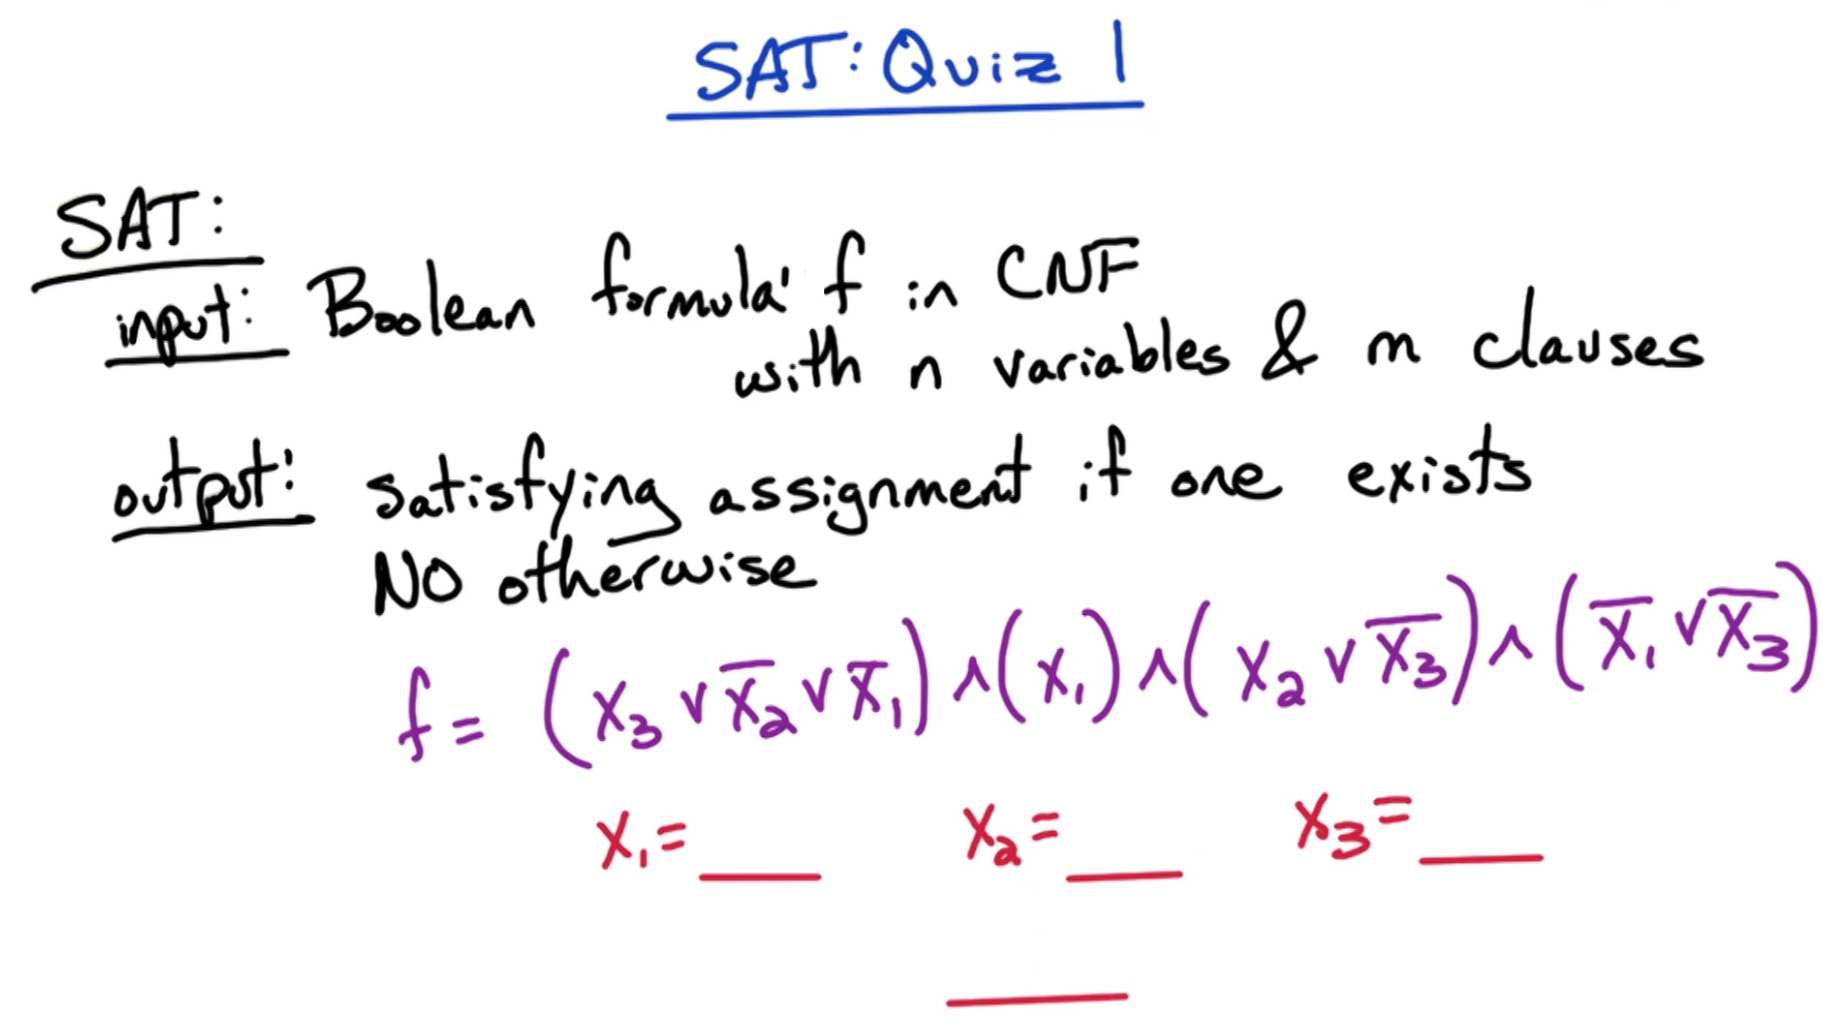 SAT: Quiz 1
SAT:
input: Boolean formula f in CNF
with n variables & m clauses
output: satisfying assignment if one exists
NO otherwise
f = (x₃ ∨ x̅₂ ∨ x̅₁) ∧ (x₁) ∧ (x₂ ∨ x̅₃) ∧ (x̅₁ ∨ x̅₃)
x₁ = ___ x₂ = ___ x₃ = ___